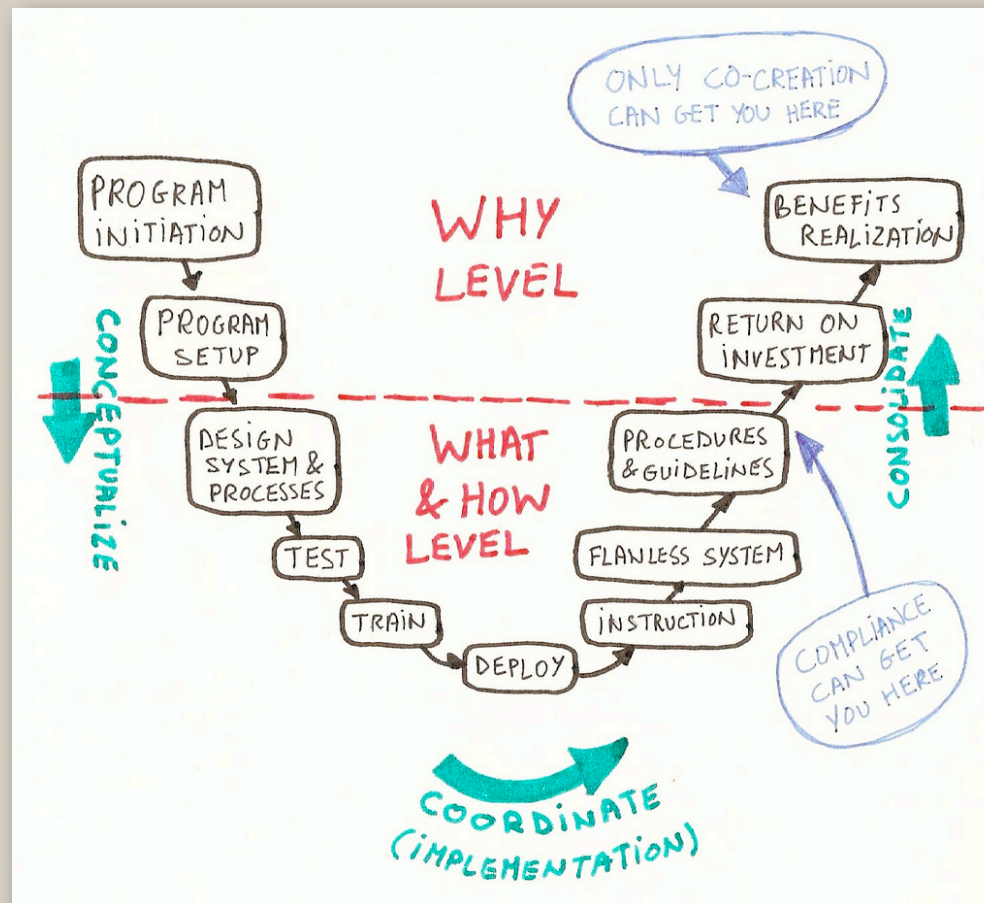 ONLY CO-CREATION
CAN GET YOU HERE
PROGRAM
INITIATION
WHY
LEVEL
BENEFITS
REALIZATION
PROGRAM
SETUP
RETURN ON
INVESTMENT
CONCEPTUALIZE
CONSOLIDATE
DESIGN
SYSTEM &
PROCESSES
WHAT
& HOW
LEVEL
PROCEDURES
& GUIDELINES
TEST
FLANLESS SYSTEM
TRAIN
INSTRUCTION
DEPLOY
COMPLIANCE
CAN GET
YOU HERE
COORDINATE
(IMPLEMENTATION)